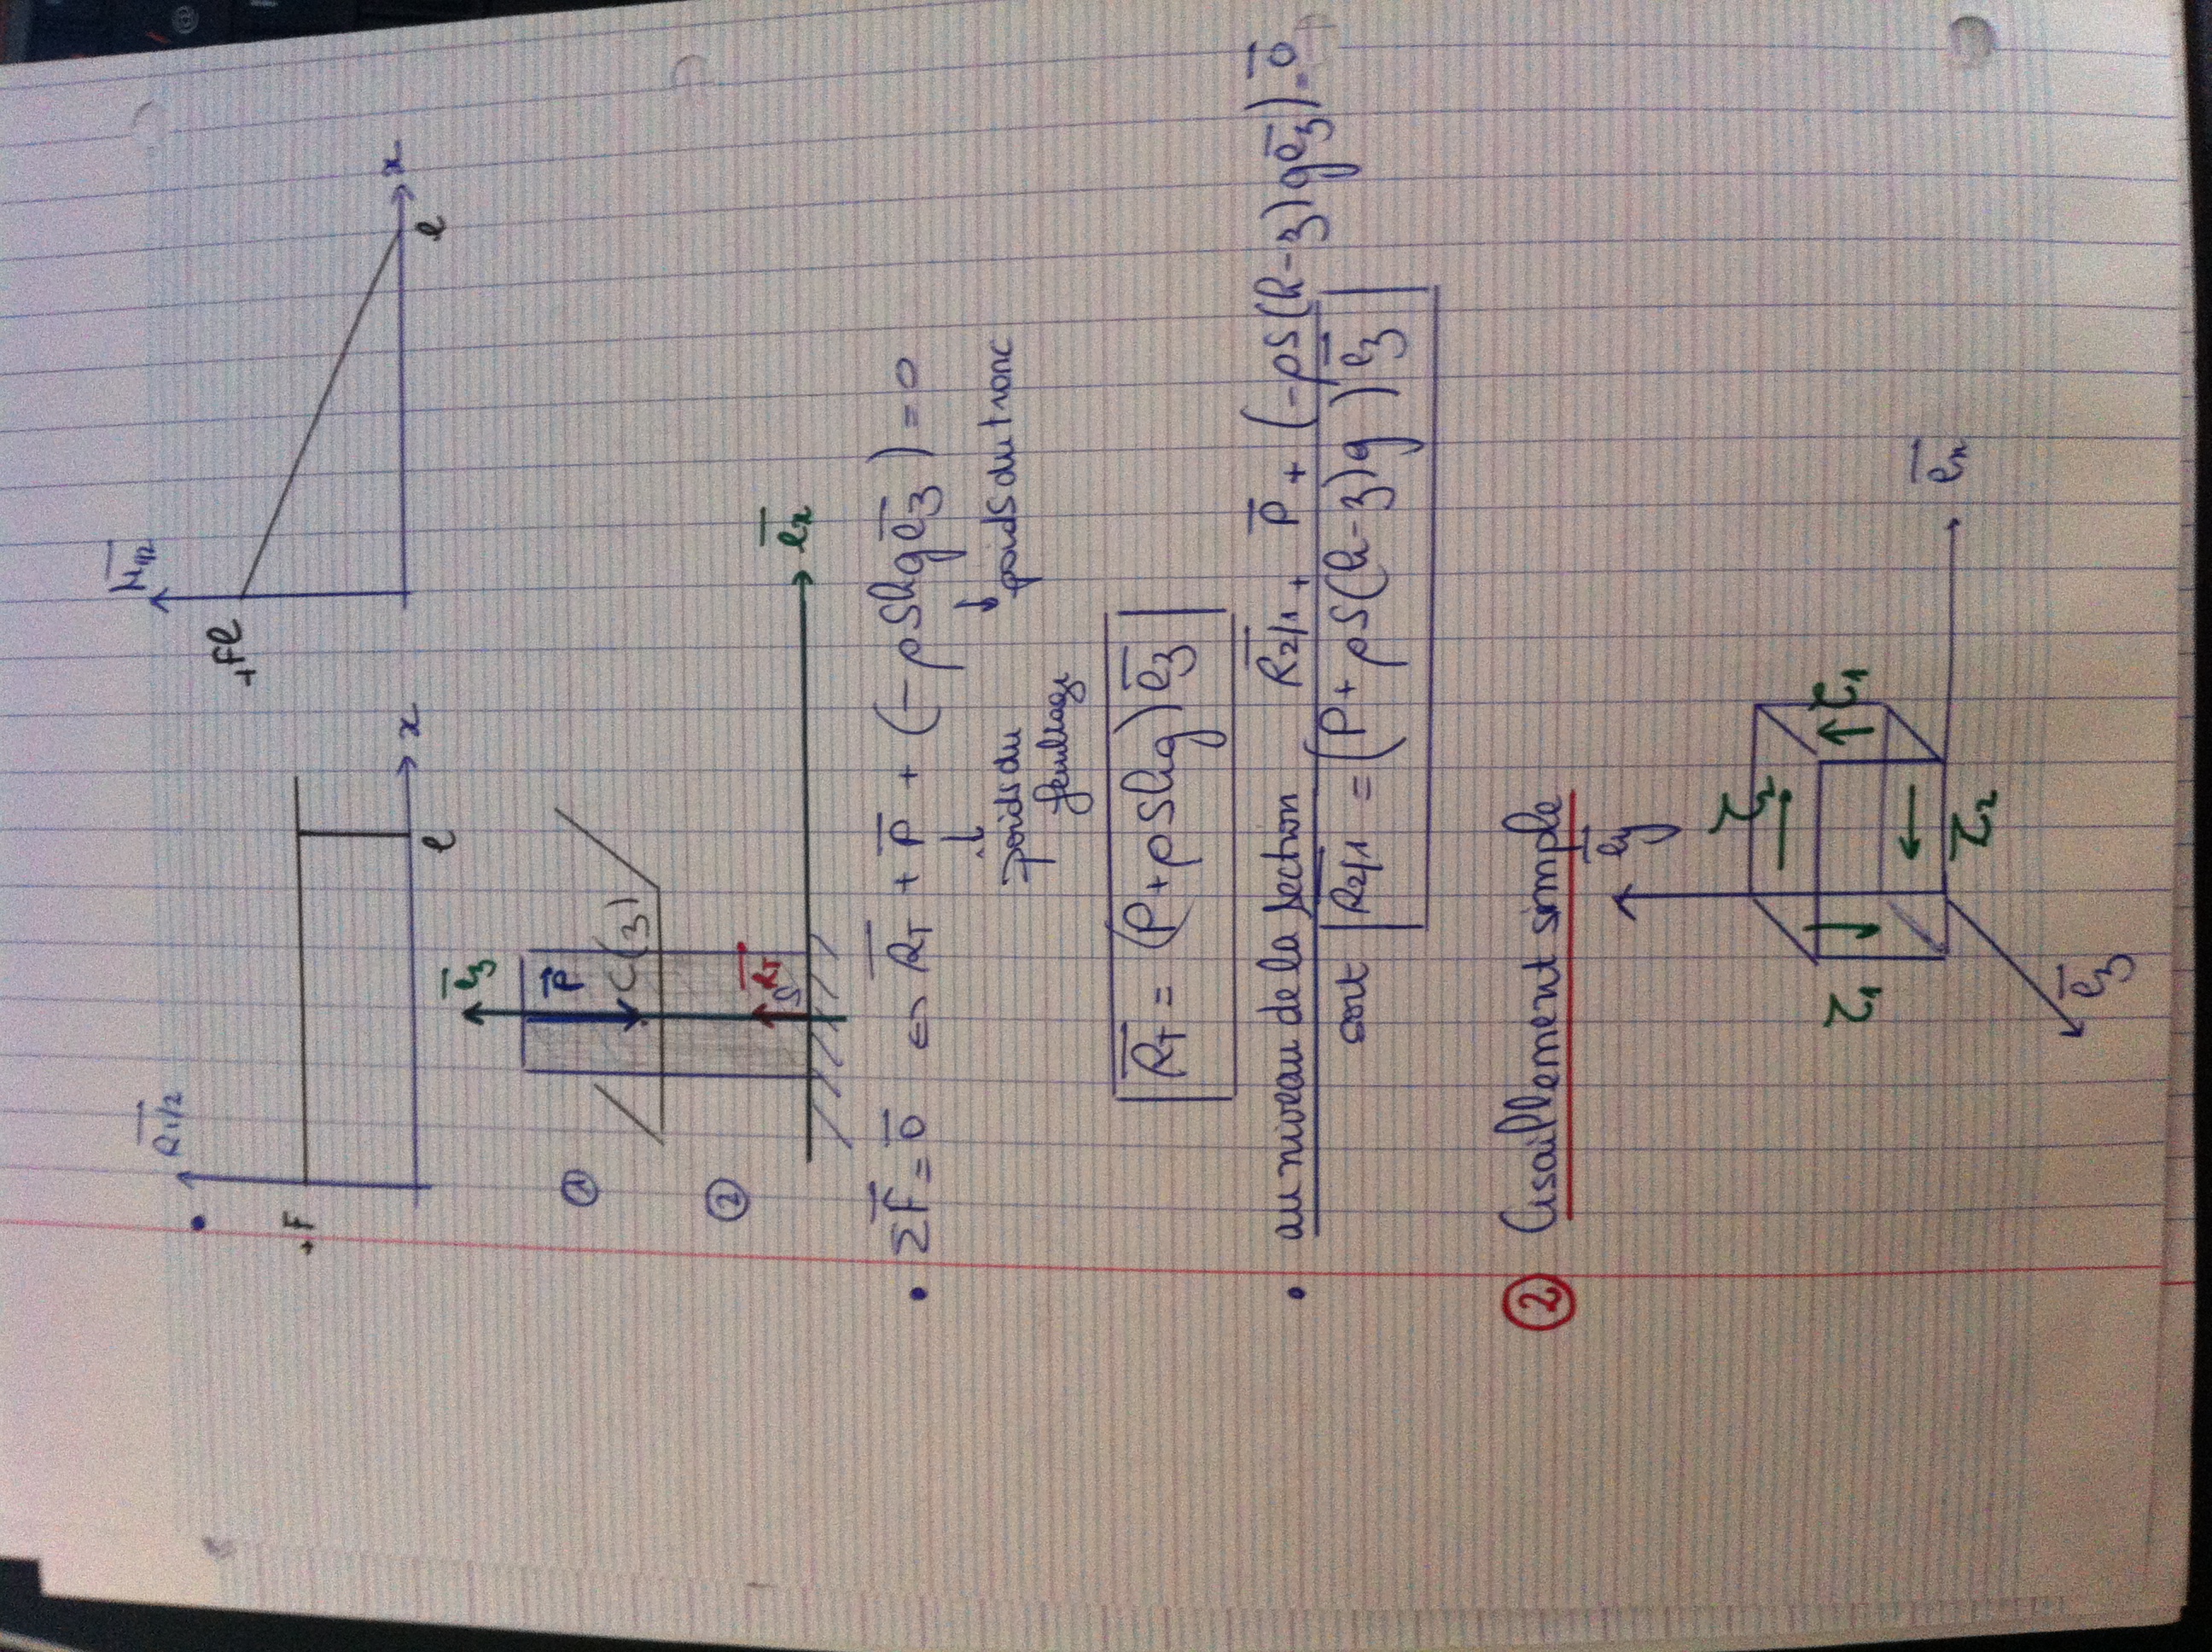 R1/2
M1/2
+Fl
+F
x
l
x
l
ez
① P
C(z)
②
RT
S
ex
• ΣF = 0 ⇔ RT + P + (-ρShg ez) = 0
↓ poids du feuillage
↓ poids du tronc
RT = (P+ρShg) ez
• au niveau de la section R2/1 + P + (-ρS(h-z)g ez) = 0
soit R2/1 = (P+ ρS(h-z)g) ez
② Cisaillement simple
ey
τ2
τ1
τ1
τ2
ex
ez